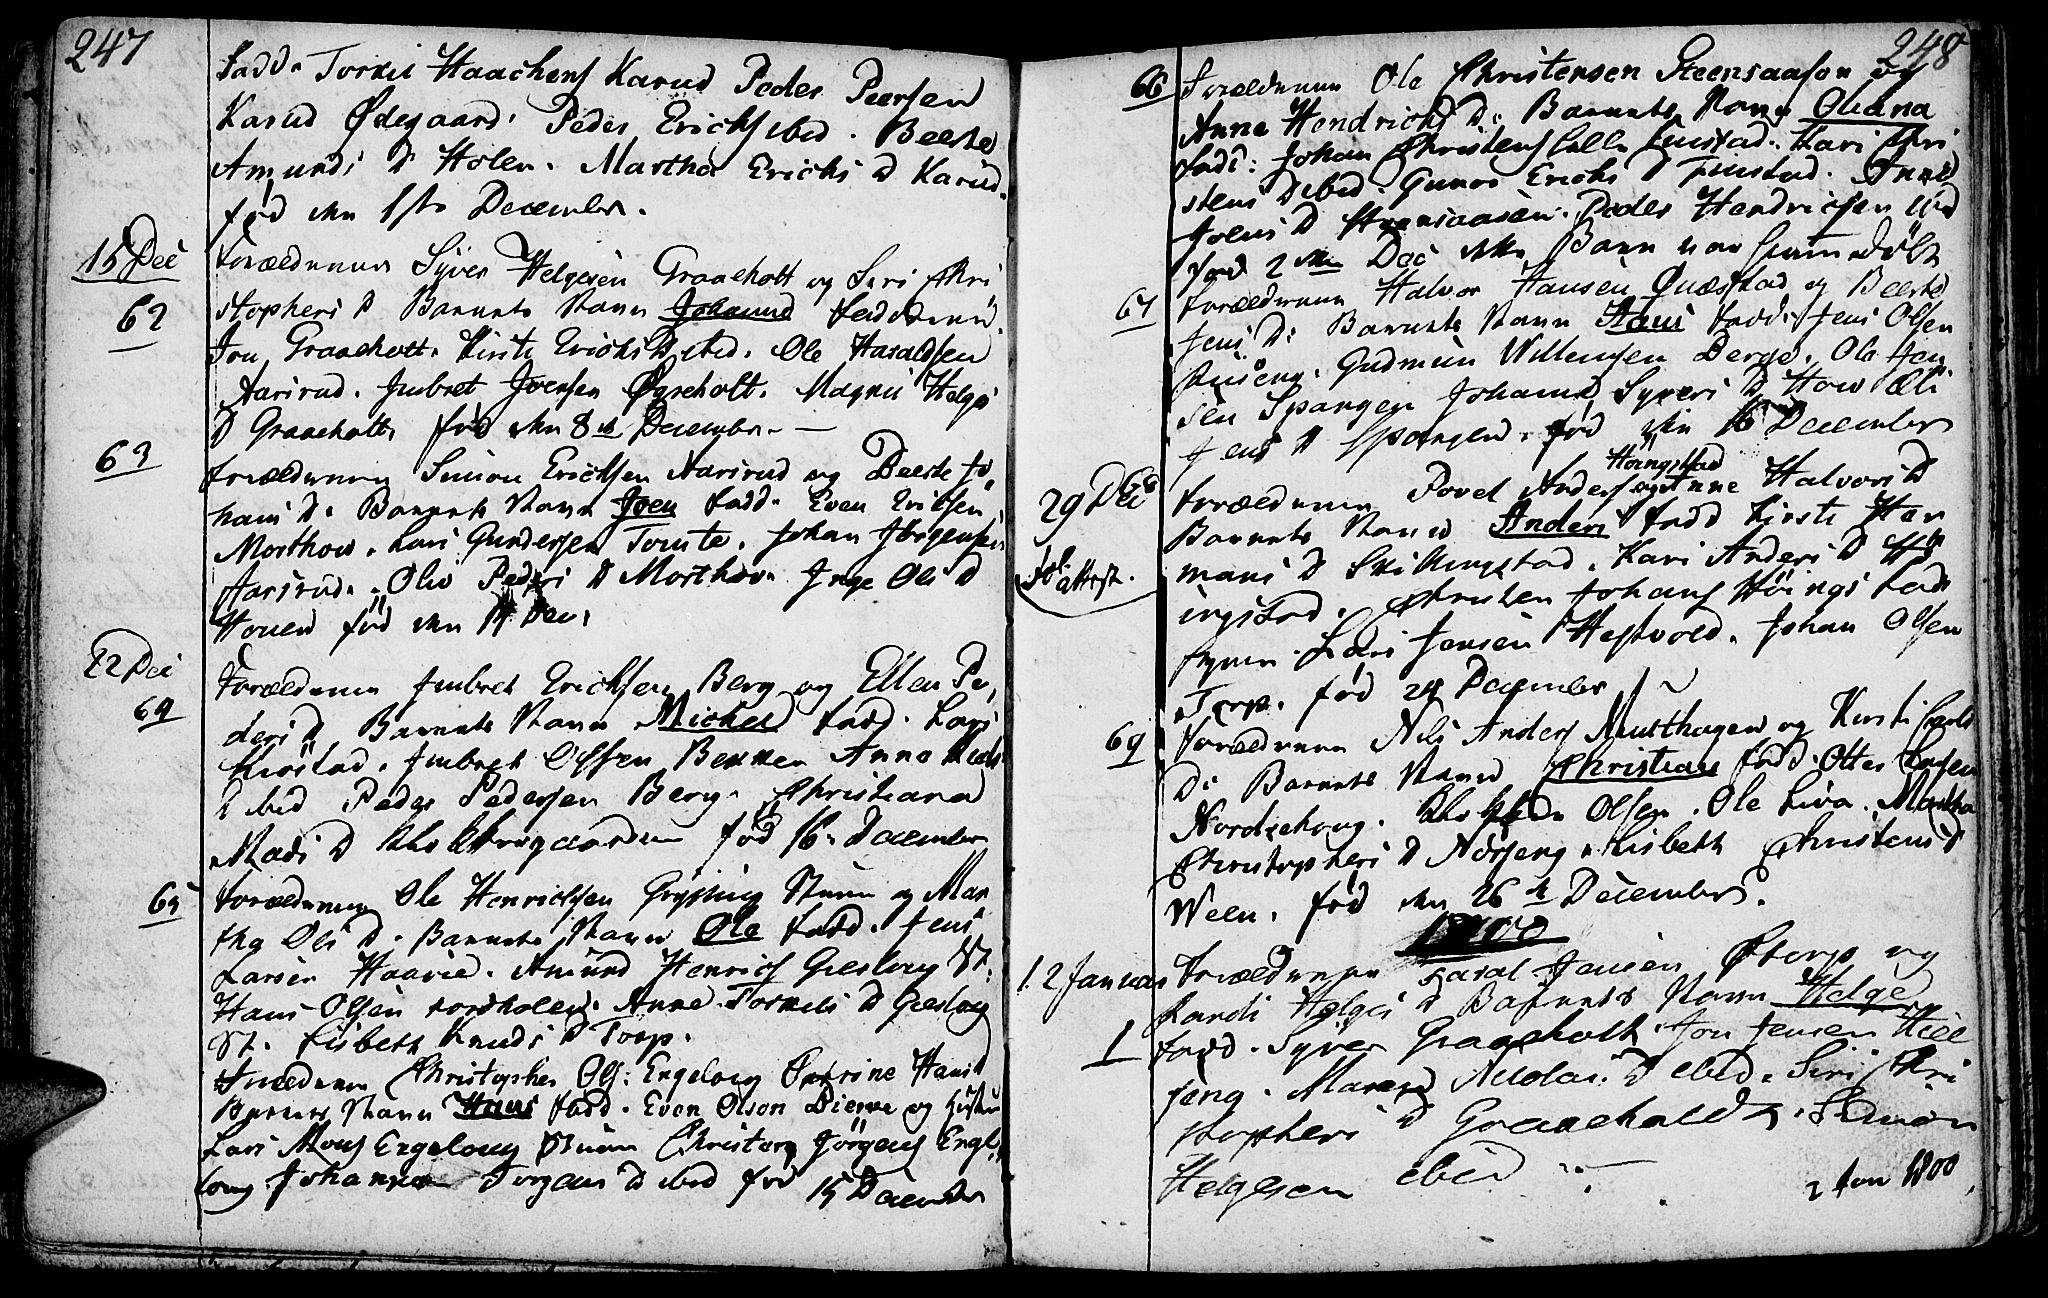 247
Fadd. Torkil Haachens Karud Peder Peersen
Karud Ødegaard. Peder Erichs ibid. Beerte
Amunds D Holen. Martha Erichs D Karud.
fød den 1ste December.
15 Dec
Forældrene Syver Helgesen Graaeholt og Siri Chri
62
stophers D Barnets Navn Johanne Fadderne
Jon Graaeholt. Kirsti Erichs D ibid. Ole Haraldsen
Aarsrud. Imbret Joensen Øgreholt. Magnil Helge
D Graaeholt fød den 8de December.
63
Forældrene Simon Erichsen Aarsrud og Beerte Jo
hans D. Barnets Navn Joen Fadd. Even Erichsen
Morthow. Lars Gundersen Tomte. Johan Jørgensen
Aarsrud. Oliv Peders D Morthow. Inge Ols D
Houen fød den 14 Dec.
22 Dec
64
Forældrene Imbret Erichsen Berg og Ellen Pe
ders D Barnets Navn Michel Fadd. Lars
Imbret Olsen Bekken Anne
D ibid Peder Pedersen Berg. Christiana
Mads D Klokkergaarden fød 16. December
65
Forældrene Ole Henrichsen og Mar
tha Ols D. Barnets Navn Ole Fadd. Jens
Larsen Haavie. Amund Henrichs Gieslaug St.
Hans Olsen Anne Torkels D Gieslaug
St. Lisbeth Knuds D Torp.
Forældrene Christopher Ols: Engelaug Hans D
Barnets Navn Hans Fadd. Even Olson og
Lars Mons Engelaug Christen Jørgens Enge
laug Johanne Jørgens D ibid fød 15 December
248
66
Forældrene Ole Christensen Steensaason og
Anne Hendrichs D. Barnets Navn Oleana
Fadd: Johan Christens Finstad. Kari Chri
stens D ibid. Gunor Erichs D Finstad. Anne
Joens D Steensaasen. Peder Hendrichsen ibid
fød 2den Dec. Barn var hiemmedøbt
67
Forældrene Halvor Hansen Quæstad og Beerte
Jens D. Barnets Navn Hans Fadd. Jens Olsen
Gudmun Willumsen Berge. Ole Han
sen Spangen Johanne Syvers D How
Jens D Spangen. fød den 16 December
29 Dec
68
Høingstad
Forældrene Povel Anders og Anne Halvors D
Barnets Navn Anders Fadd Kirsti Her
mans D Skillingstad. Kari Anders D Hø
ingstad. Christen Johans Høingstad
Lars Jensen Hestvold. Johan Olsen
Torp. fød 24 December
69
Forældrene Nils Anders Musthagen og Kirsti
D. Barnets Navn Christian Fadd. Otter
Nordsehoug. Olsen. Ole Lixa. Martha
Christophers D Nørseng. Lisbeth Christens D
Ween. fød den 26de December.
1800
12 Januar
Forældrene Haral Jensen Østorp og
Randi Helges D Barnets Navn Helge
1
Fadd. Syver Graaeholt. Jon Jensen Hiel
seng. Maren Nicolai D ibid. Siri Chri
stophers D Graaeholdt. Simon
Helgesen ibid
2 Jan 1800